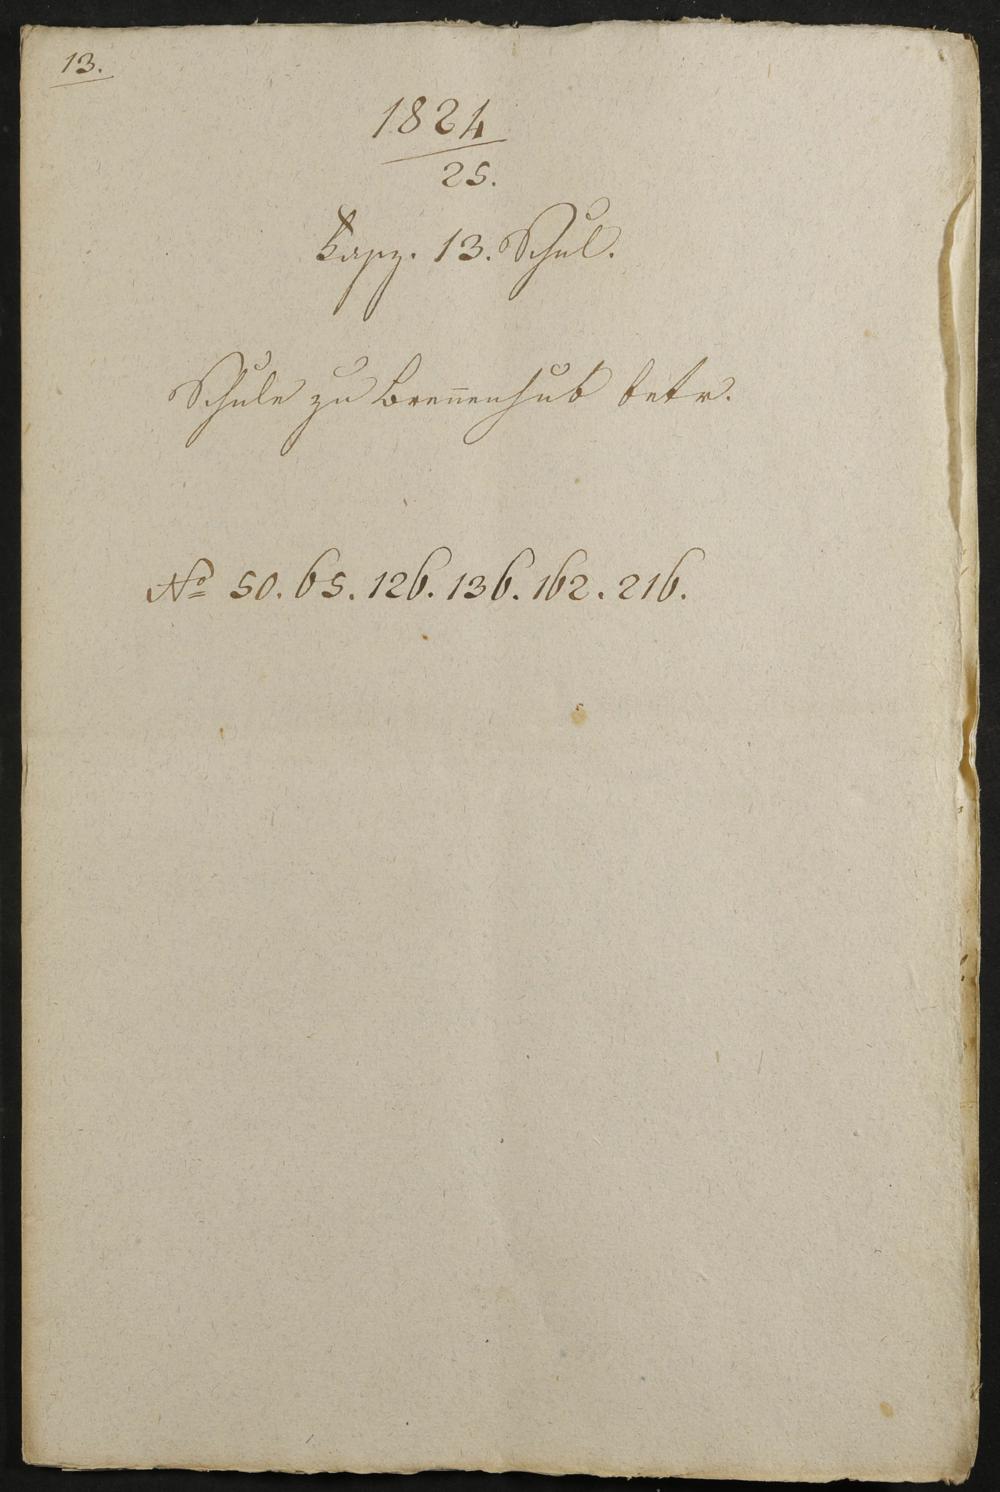 13.
1824
25.
Fasz. 13. Schul.
Schule zu Brennenhub betr.
No 50. 65. 126. 136. 162. 216.